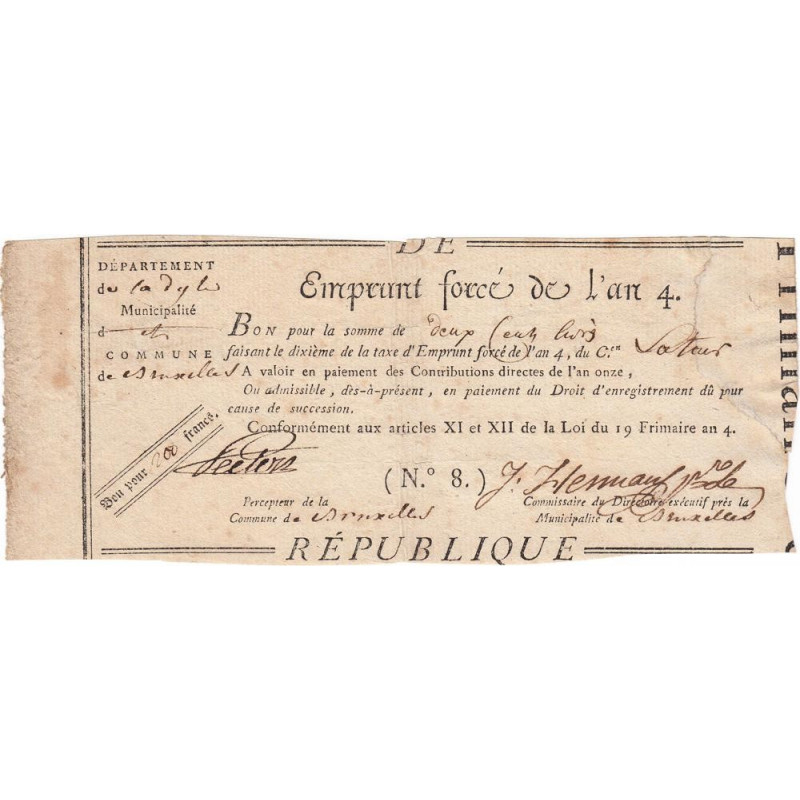 DE
DÉPARTEMENT
de la dyle
Municipalité
d et
COMMUNE
de Bruxelles
Emprunt forcé de l'an 4.
BON pour la somme de deux Cent livres
faisant le dixième de la taxe d'Emprunt forcé de l'an 4, du C.en Latour
A valoir en paiement des Contributions directes de l'an onze,
Ou admissible, dès-à-présent, en paiement du Droit d'enregistrement dû pour
cause de succession.
Conformément aux articles XI et XII de la Loi du 19 Frimaire an 4.
Bon pour 200 francs.
Peeters
(N.º 8.)
Percepteur de la
Commune de Bruxelles
Commissaire du Directoire exécutif près la
Municipalité de Bruxelles
RÉPUBLIQUE